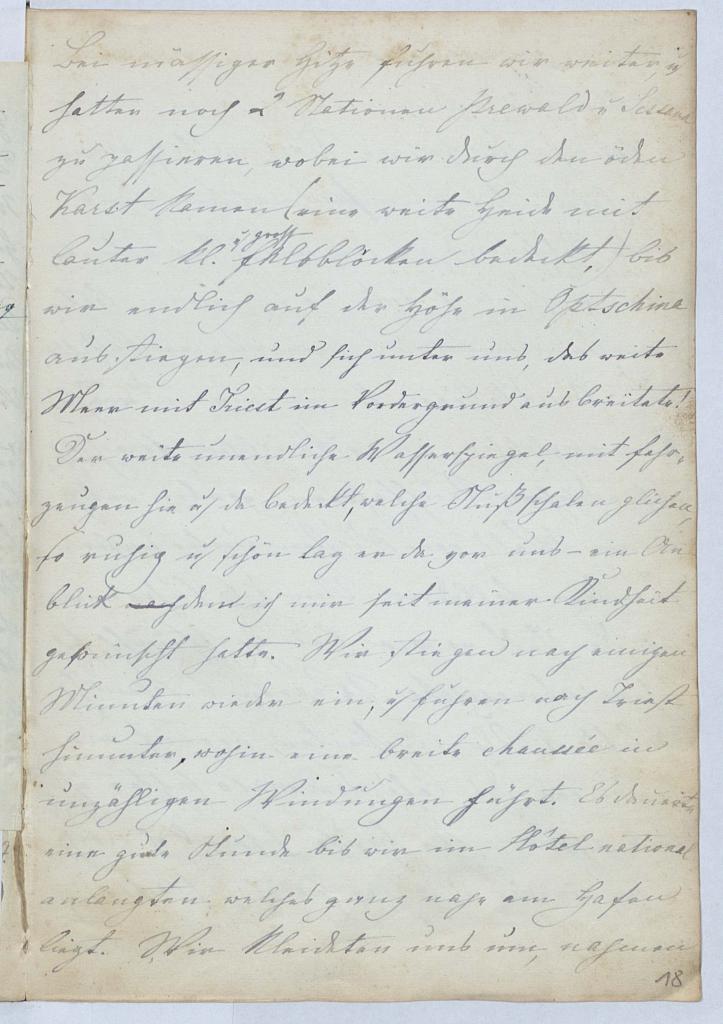 Bei mässiger Hitze fuhren wir weiter, u
hatten noch 2 Stationen Prewald u Sessana
zu passieren, wobei wir durch den öden
Karst kamen (eine weite Heide mit
u gross
lauter kl. Felsblöcken bedeckt,) bis
wir endlich auf der Höhe in Optschina
ausstiegen, und sich unter uns, das weite
Meer mit Triest im Vordergrund ausbreitete!
Der weite unendliche Wasserspiegel, mit Fahr-
zeugen hie u da bedeckt, welche Nußschalen glichen,
so ruhig u schön lag er da vor uns – ein An
blick nach dem ich mir seit meiner Kindheit
gewünscht hatte. Wir stiegen nach einigen
Minuten wieder ein, u fuhren nach Triest
hinunter, wohin eine breite chaussée in
unzähligen Windungen führt. Es dauerte
eine gute Stunde bis wir im Hôtel national
anlangten welches ganz nahe am Hafen
liegt. Wir kleideten uns um, nahmen
18